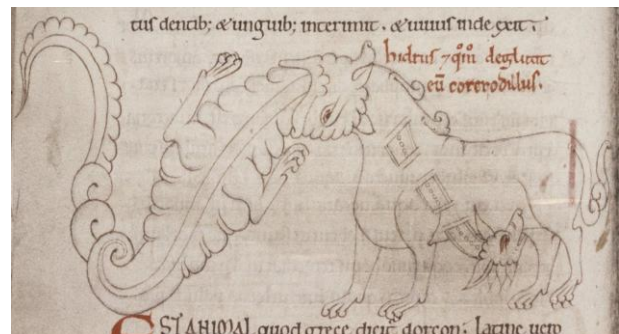 tus dentib; & unguib; interimit. & uiuus inde exit.
hidrus ⁊ qm̄ deglutit
eū corcrodillus.
EST ANIMAL quod grece dicit dorcon. latine uero